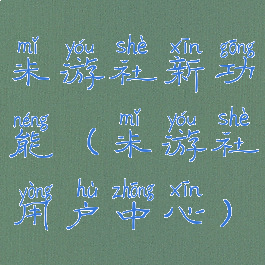 mǐ yóu shè xīn gōng
米 游 社 新 功
néng mǐ yóu shè
能 （ 米 游 社
yòng hù zhōng xīn
用 户 中 心 ）